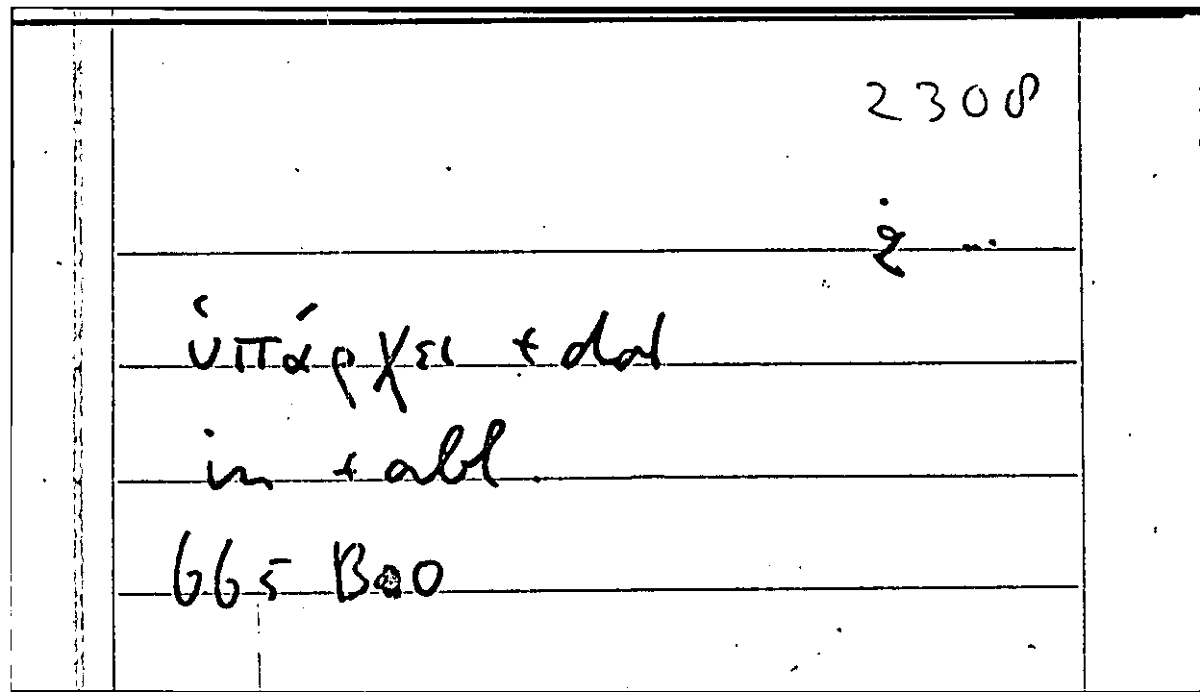 2308
ὑπάρχει + dat
in + abl.
665 B20